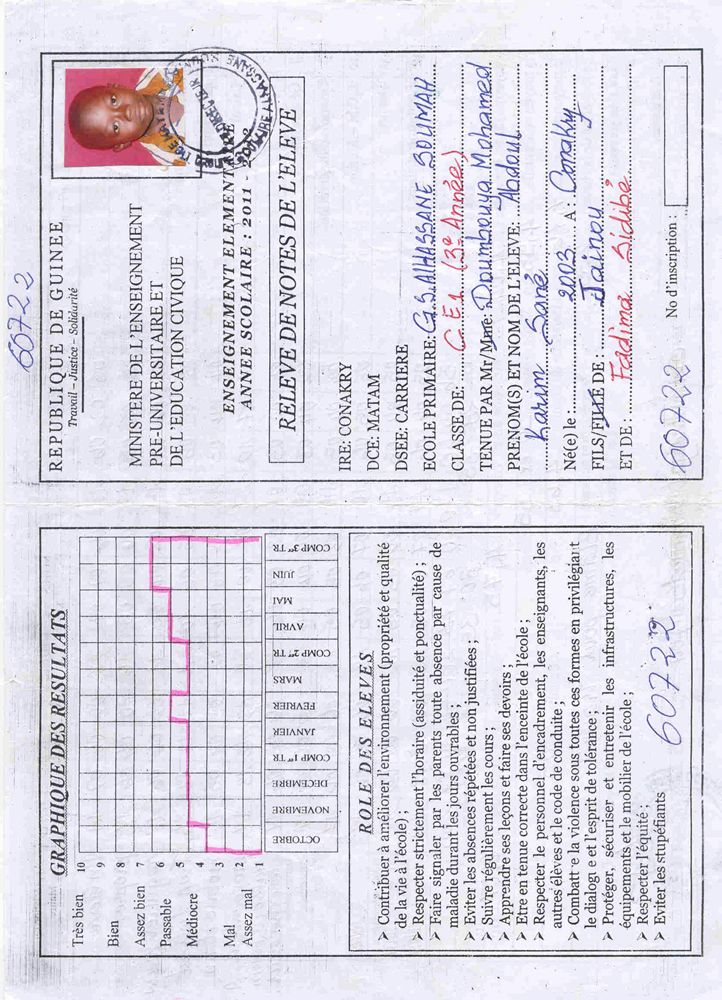 60722
REPUBLIQUE DE GUINEE
Travail - Justice - Solidarité
MINISTERE DE L'ENSEIGNEMENT
PRE-UNIVERSITAIRE ET
DE L'EDUCATION CIVIQUE
ENSEIGNEMENT ELEMENTAIRE
ANNEE SCOLAIRE : 2011 -
RELEVE DE NOTES DE L'ELEVE
IRE: CONAKRY
DCE: MATAM
DSEE: CARRIERE
ECOLE PRIMAIRE: G.S. ALHASSANE SOUMAH
CLASSE DE: C.E.1 (3e Année)
TENUE PAR Mr/Mme: Doumbouya Mohamed
PRENOM(S) ET NOM DE L'ELEVE: Abdoul
Karim Sané
Né(e) le : 2003 A : Conakry
FILS/FILLE DE : Jainou
ET DE : Fadima Sidibé
60722
No d'inscription :
GRAPHIQUE DES RESULTATS
Très bien 10
9
Bien 8
Assez bien 7
Passable 6
5
Médiocre 4
3
Mal 2
Assez mal 1
OCTOBRE
NOVEMBRE
DECEMBRE
COMP 1er TR
JANVIER
FEVRIER
MARS
COMP 2er TR
AVRIL
MAI
JUIN
COMP 3er TR
ROLE DES ELEVES
➢ Contribuer à améliorer l'environnement (propriété et qualité
de la vie à l'école) ;
➢ Respecter strictement l'horaire (assiduité et ponctualité) ;
➢ Faire signaler par les parents toute absence par cause de
maladie durant les jours ouvrables ;
➢ Eviter les absences répétées et non justifiées ;
➢ Suivre régulièrement les cours ;
➢ Apprendre ses leçons et faire ses devoirs ;
➢ Etre en tenue correcte dans l'enceinte de l'école ;
➢ Respecter le personnel d'encadrement, les enseignants, les
autres élèves et le code de conduite ;
➢ Combatt e la violence sous toutes ces formes en privilégiant
le dialogue et l'esprit de tolérance ;
➢ Protéger, sécuriser et entretenir les infrastructures, les
équipements et le mobilier de l'école ;
➢ Respecter l'équité ;
➢ Eviter les stupéfiants
60722